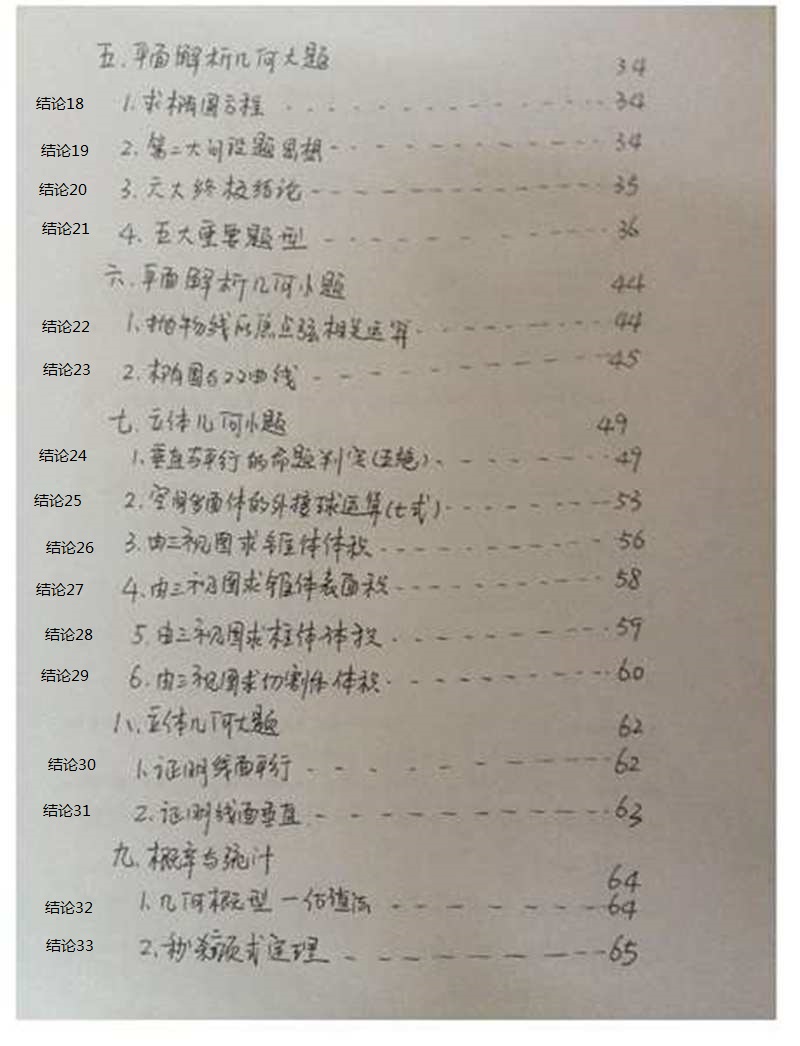 五.平面解析几何大题 34
结论18 1.求椭圆方程 34
结论19 2.第二大问设题思想 34
结论20 3.六大终极结论 35
结论21 4.五大重要题型 36
六.平面解析几何小题 44
结论22 1.抛物线点弦相关运算 44
结论23 2.椭圆与双曲线 45
七.立体几何小题 49
结论24 1.垂直与平行的命题判定(五绝) 49
结论25 2.空间多面体的外接球运算(七式) 53
结论26 3.由三视图求锥体体积 56
结论27 4.由三视图求锥体表面积 58
结论28 5.由三视图求柱体体积 59
结论29 6.由三视图求切割体体积 60
八、立体几何大题 62
结论30 1.证明线面平行 62
结论31 2.证明线面垂直 63
九.概率与统计 64
结论32 1.几何概型一估值法 64
结论33 2.秒杀项式定理 65